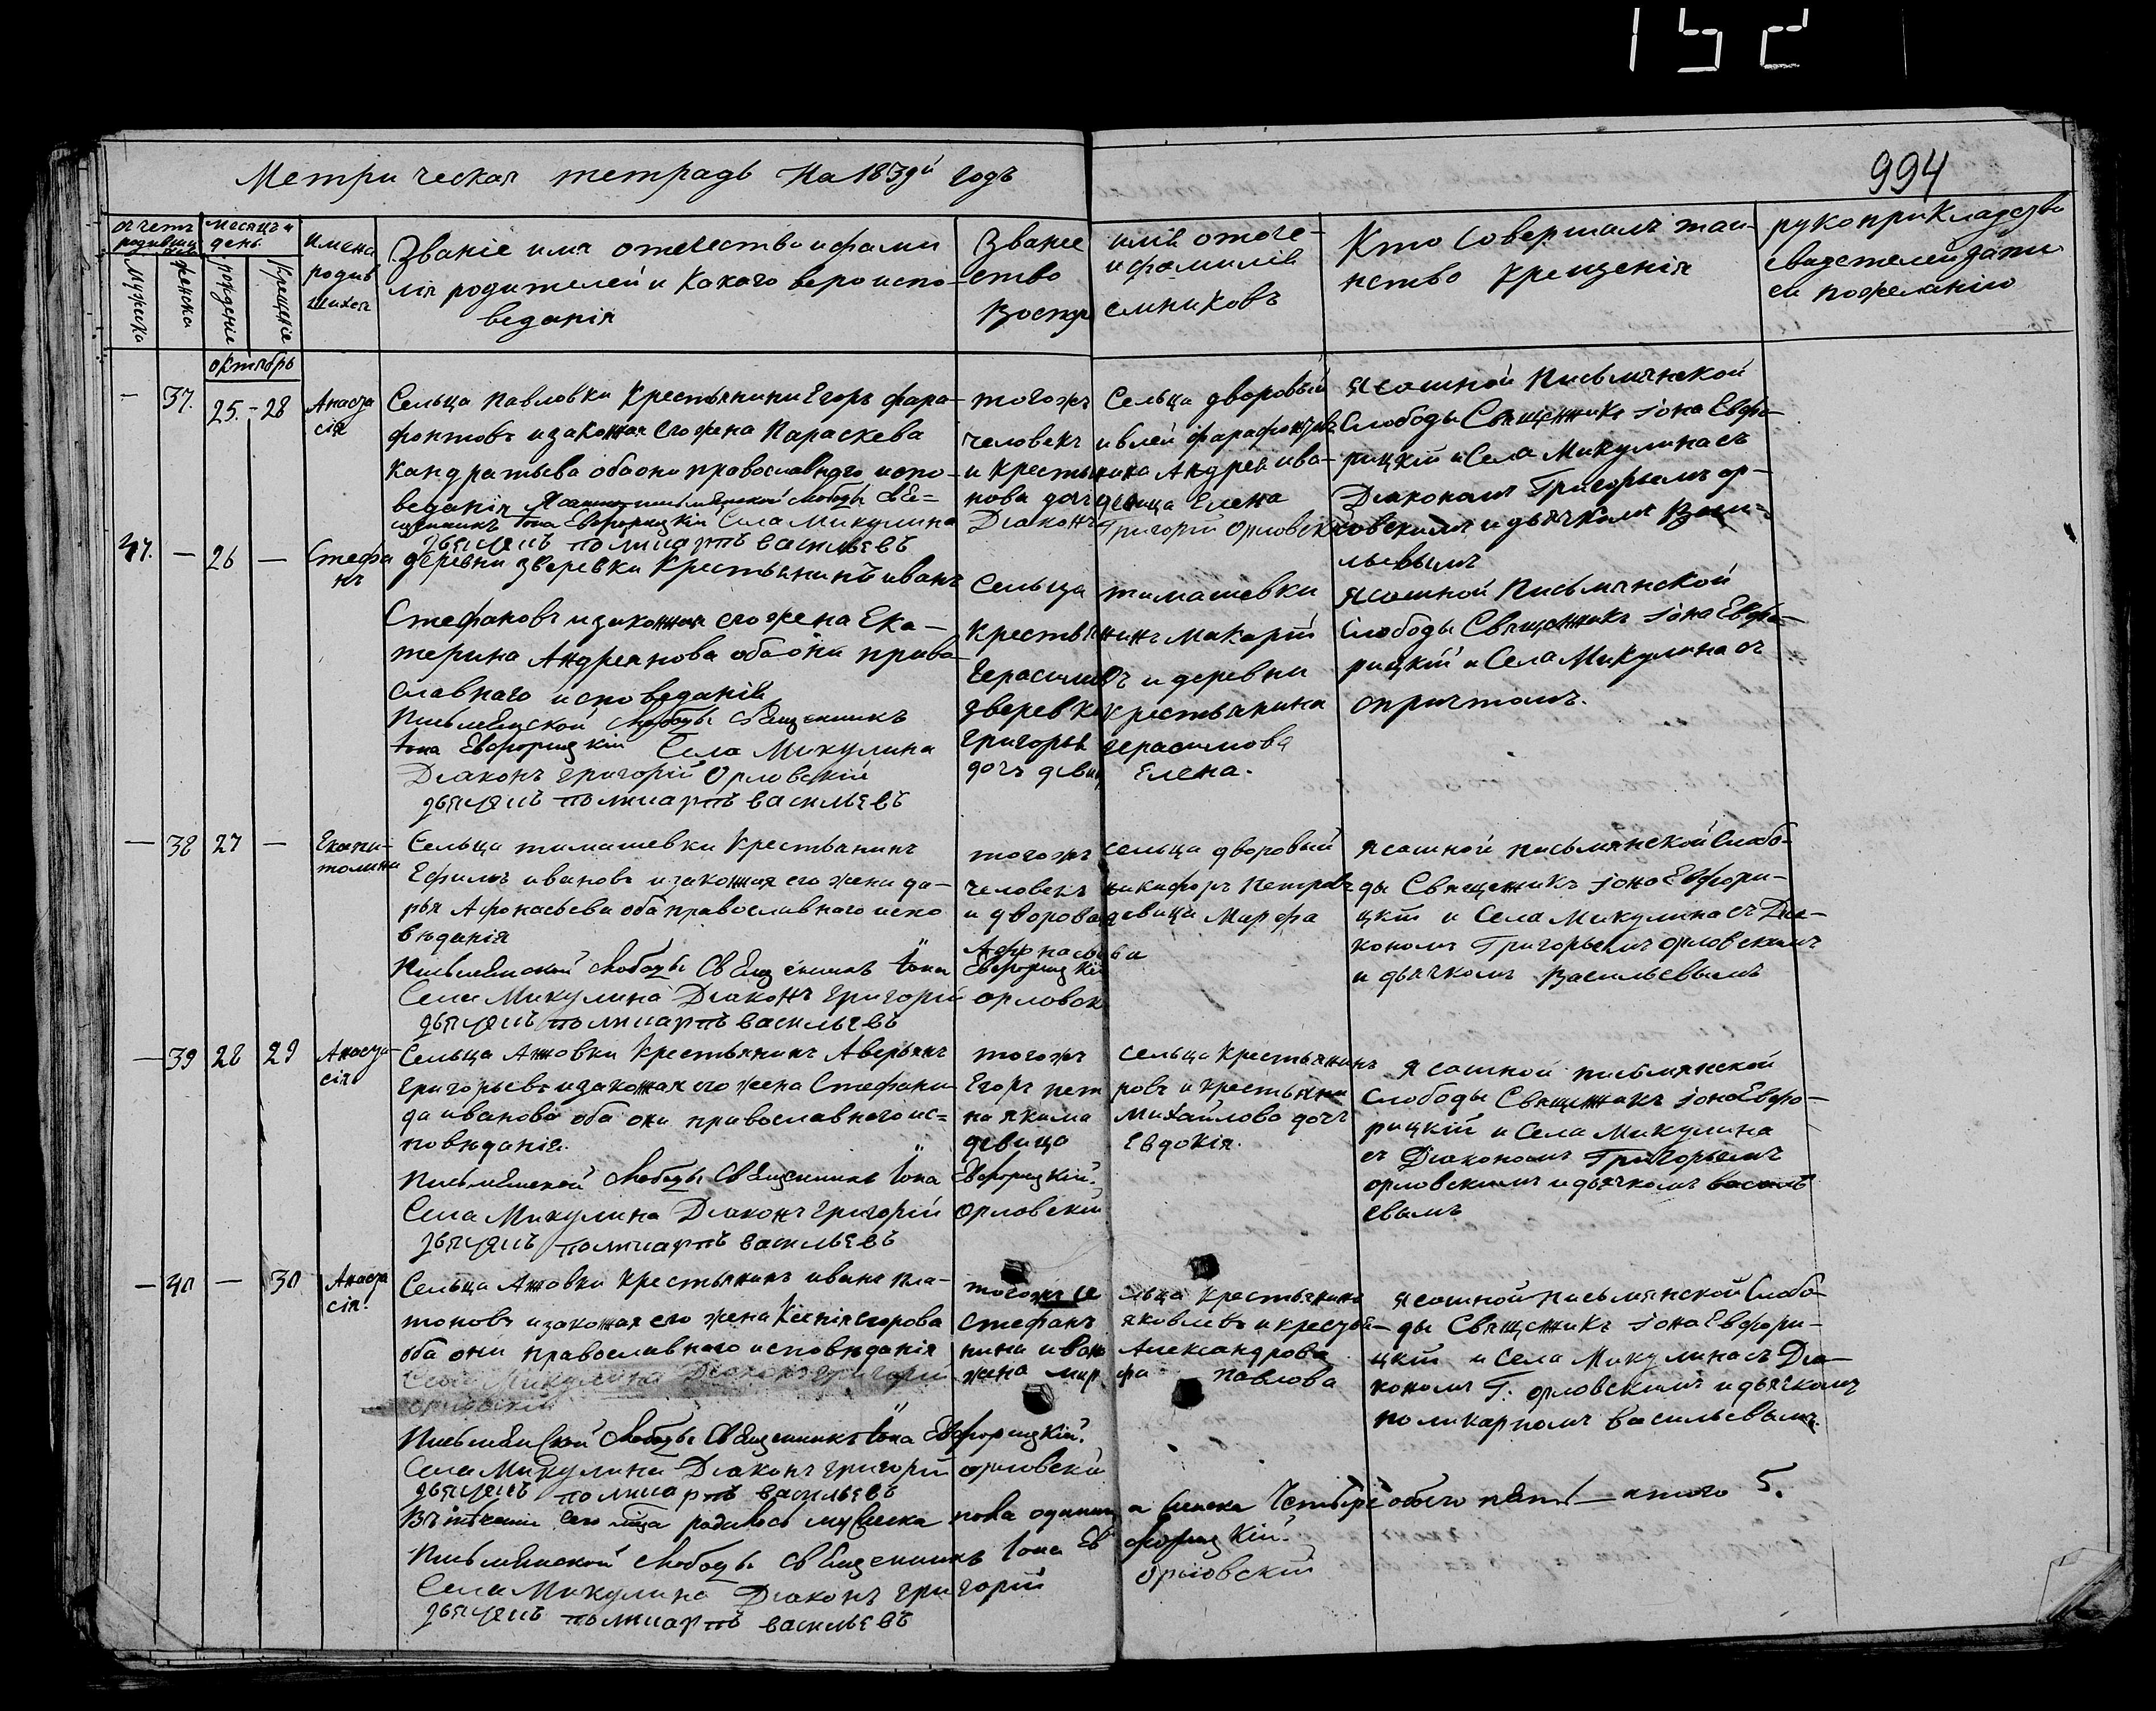 152
994
Метрическая тетрадь на 1839й годъ
счетъ родивши
мужска
женска
месяцъ и день
рождение
крещение
имена родив шихся
Званіе имя отечество и фами
лія родителей и какого вероиспо
веданія
Званіе имя оточе
ство и фамилія
восприемниковъ
Кто совершалъ таи
нство крещенія
рукоприкладство
свидетелей запи
си по желанію
октябрь
— 37. 25. – 28 Анаста
сія
Сельца Павловки Крестьянинъ Егоръ фара
фонтовъ и законная его жена Параскева
Кандратьева оба они православнаго испо
веданія Ясашной письмянской слободы Свя=
щенникъ Іона Евфорицкій Села Микулина
дьячекъ поликарпъ васильевъ
тогожъ Сельца дворовый
человекъ
и крестьянина Андрея ива
нова дочь девица Елена
Діаконъ Григорій Орловскій
Ясашной Письмянской
Слободы Священникъ іона Евфо
рицкій и Села Микулина съ
Діакономъ Григорьемъ ор
ловскимъ и дьячкомъ Васи
льевымъ
47. — 26 — Стефа
нъ
деревни зверевки Крестьянинъ иванъ
Стефановъ и законная его жена Ека
терина Андреянова оба они право
славнаго исповеданія
Письмянской слободы священникъ
Іона Евфорицкій Села Микулина
Діаконъ григорій Орловскій
дьячекъ поликарпъ васильевъ
Сельца тимашевки
Крестьянинъ макарій
Герасимовъ и деревни
зверевки крестьянина
григорья герасимова
дочь девица Елена.
Ясашной Письмянской
Слободы Священникъ іона Евфо
рицкій и Села Микулина съ
причтомъ.
— 38 27 — Екапи
толина
Сельца тимашевки Крестьянинъ
Ефимъ ивановъ и законная его жена да
рья Афонасьева оба православнаго испо
вѣданія
Письмянской слободы Священникъ Іона Евфорицкій
Села Микулина Діаконъ григорій орловск
дьячекъ поликарпъ васильевъ
тогожъ сельца дворовый
человекъ никифоръ Петровъ
и дворовая девица Марфа
Афонасьева
Ясашной письмянской Слобо
ды Священникъ іона Евфори
цкій и Села Микулина съ Діа
кономъ Григорьемъ орловскимъ
и дьячкомъ Васильевымъ
— 39 28 29 Анаста
сія
Сельца Ажовки Крестьянинъ Аверьянъ
григорьевъ и законная его жена Стефани
да иванова оба они православного ис=
повѣданія.
Письмянской слободы Священникъ Іона Евфорицкій.
Села Микулина Діаконъ григорій Орловскій
дьячекъ поликарпъ васильевъ
тогожъ сельца крестьянинъ
Егоръ петровъ и крестьяни
на якима Михайлова дочь
девица Евдокія.
Ясашной письмянской
Слободы Священникъ іона Евфо
рицкій и Села Микулина
съ Діакономъ Григорьемъ
орловскимъ и дьячкомъ василь
евымъ
— 40 — 30 Анаста
сія.
Сельца Ажовки Крестьянинъ иванъ пла
тоновъ и законная его жена Ксенія егорова
оба они православнаго исповѣданія
Села Микулина Діаконъ григорій
орловскій
Письмянской слободы Священникъ Іона Евфорицкій.
Села Микулина Діаконъ григорій орловскій
дьячекъ поликарпъ васильевъ
тогожъ сельца крестьянинъ
Стефанъ яковлевъ и крестья
нина ивана Александрова
жена марфа павлова
Ясашной письмянской Слобо
ды Священникъ іона Евфори
цкій и села Микулина съ Діа
кономъ Г. орловскимъ и дьячкомъ
поликарпомъ васильевымъ.
родилось мужеска пола одинъ а женска Четыре обоего пять — итого 5.
Письмянской слободы священникъ Іона Евфорицкій.
Села Микулина Діаконъ григорій орловскій
дьячекъ поликарпъ васильевъ